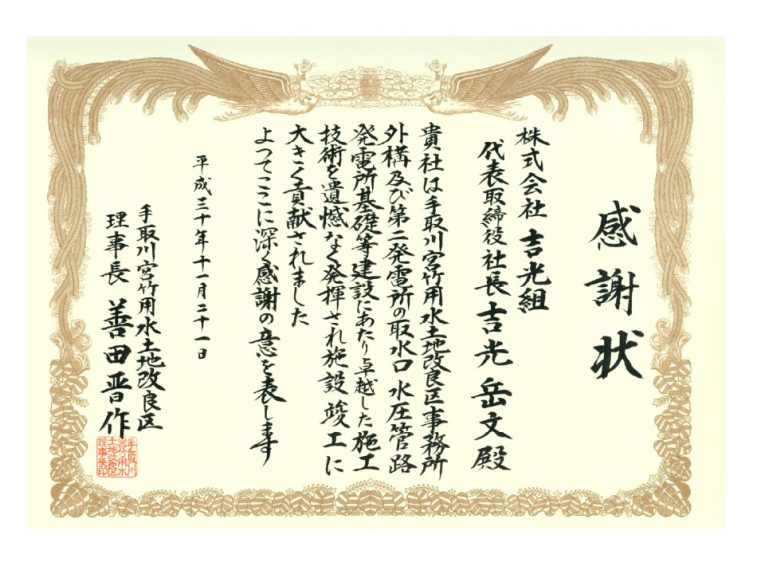 感謝状
株式会社 吉光組
代表取締役社長 吉光岳文殿
貴社は手取川宮竹用水土地改良区事務所
外構及び第二発電所の取水口 水圧管路
発電所基礎等建設にあたり卓越した施工
技術を遺憾なく発揮され施設竣工に
大きく貢献されました
よってここに深く感謝の意を表します
平成三十年十一月二十一日
手取川宮竹用水土地改良区
理事長 善田晋作
手取川
宮竹用水
土地改良区
理事長印